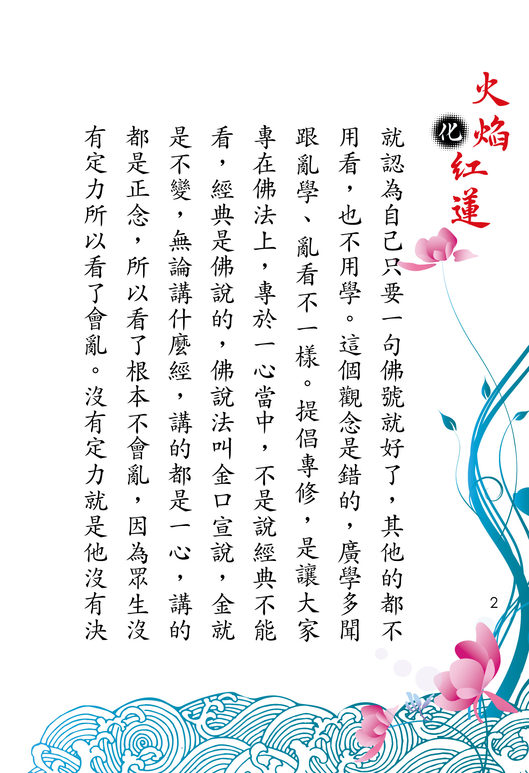 火焰化紅蓮
就認為自己只要一句佛號就好了，其他的都不
用看，也不用學。這個觀念是錯的，廣學多聞
跟亂學、亂看不一樣。提倡專修，是讓大家
專在佛法上，專於一心當中，不是說經典不能
看，經典是佛說的，佛說法叫金口宣說，金就
是不變，無論講什麼經，講的都是一心，講的
都是正念，所以看了根本不會亂，因為眾生沒
有定力所以看了會亂。沒有定力就是他沒有決
2